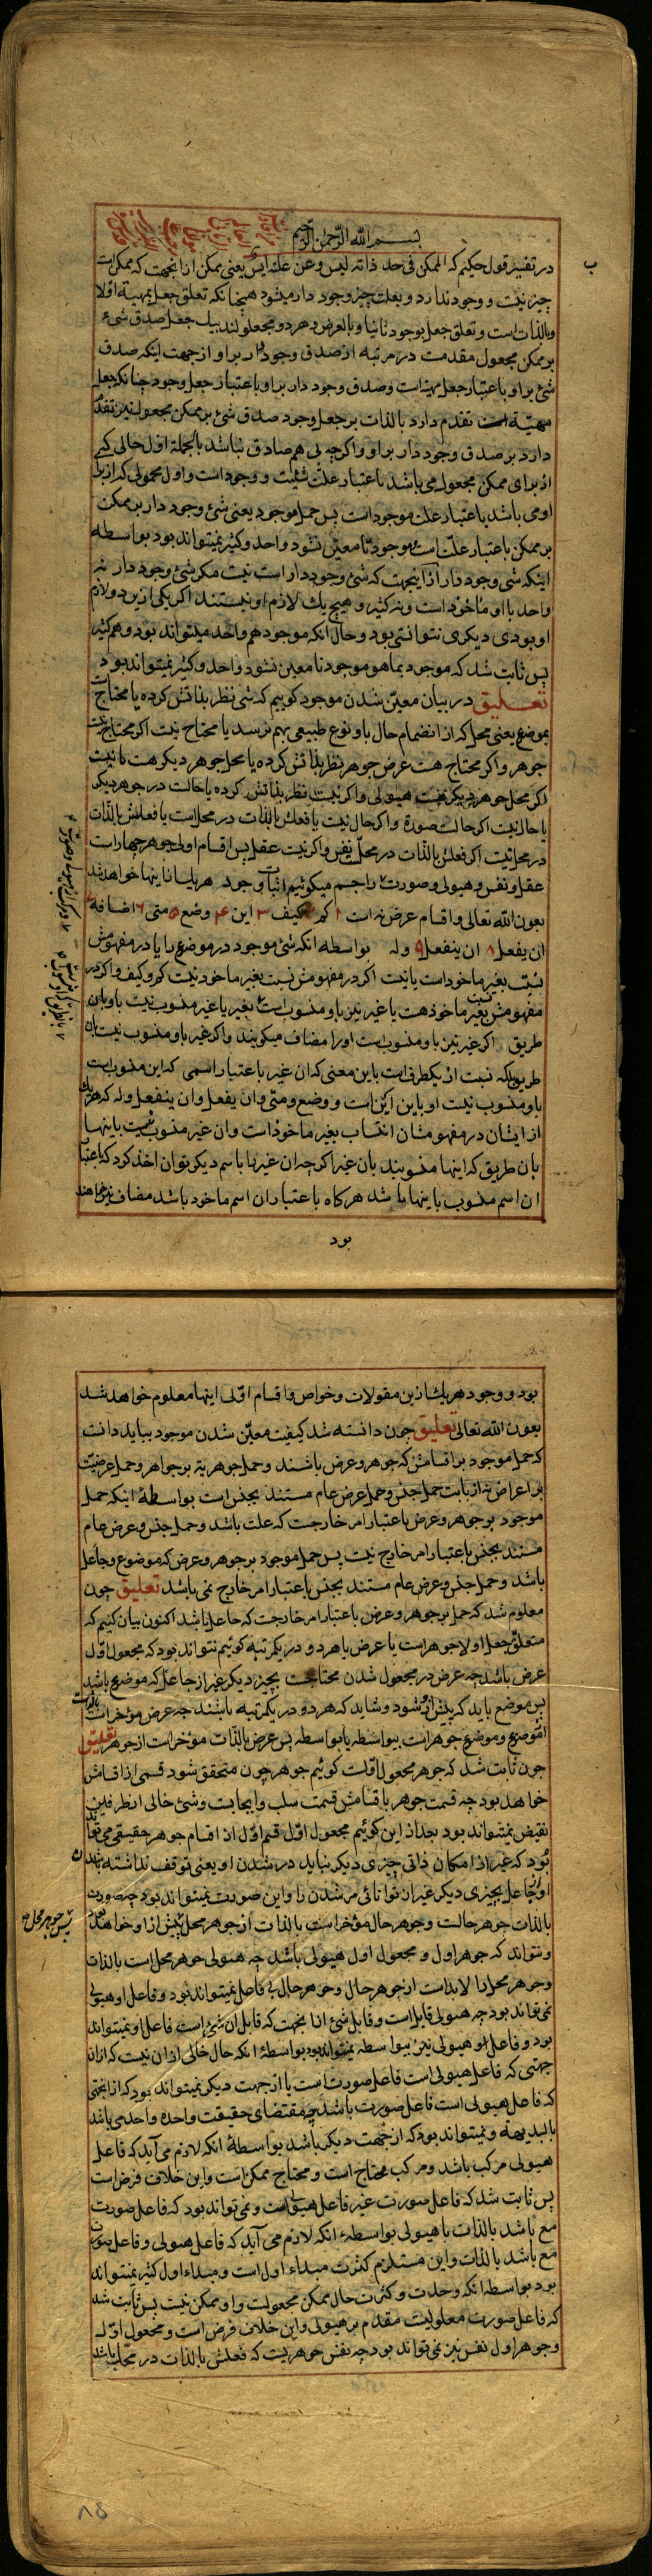 بسم الله الرحمن الرحیم
در تفسیر قول حکیم که الممکن فی حد ذاته لیس و عن علته ایس یعنی ممکن از انجهت که ممکن است
چیز نیست و وجود ندارد و بعلت چیز وجود دار میشود همچنانکه تعلق جعل بمهیة اولا
و بالذات است و تعلق جعل بوجود ثانیا و بالعرض و هر دو مجعولند بیک جعل صدق شیء
بر ممکن مجعول مقدمست در مرتبه از صدق وجود دار بر او از جهت اینکه صدق
شئ بر او باعتبار جعل مهیة است و صدق وجود دار بر او باعتبار جعل وجود چنانکه جعل
مهیة است تقدم دارد بالذات بر جعل وجود صدق شئ بر ممکن مجعول نیز تقدم
دارد بر صدق وجود دار بر او و اکرچه بی هم صادق نباشد بالجملة اول حالی که
از برای ممکن مجعول می باشد باعتبار علت شئیت و وجود است و اول محمولی که از برای
او می باشد باعتبار علت موجود است پس حمل موجود یعنی شئ وجود دار بر ممکن
بر ممکن باعتبار علت است موجود تا معین نشود واحد و کثیر نمیتواند بود بواسطه
اینکه شئ وجود دار از اینجهت که شئ وجود دار است نیست مکر شئ وجود دار نه
واحد با او ماخوذ است و نه کثیر و هیچ یک لازم او نیستند اکر یکی ازین دو لازم
او بودی دیکری نتوانستی بود و حال انکه موجود هم واحد میتواند بود و هم کثیر
پس ثابت شد که موجود بما هو موجود تا معین نشود واحد و کثیر نمیتواند بود
تعلیق در بیان معین شدن موجود کوییم که شئ نظر بذاتش کرده یا محتاج
بموضع یعنی محل که از انضمام حال باو نوع طبیعی بهم نرسد یا محتاج نیست اکر محتاج نیست
جوهر و اکر محتاج هست عرض جوهر نظر بذاتش کرده یا محل جوهر دیکر هست یا نیست
اکر محل جوهر دیکر هست هیولی و اکر نیست نظر بذاتش کرده یا حالست در جوهر دیکر
یا حال نیست اکر حالست صورة و اکر حال نیست یا فعلش بالذات در محل است یا فعلش بالذات
در محل نیست اکر فعلش بالذات در محل نفس و اکر نیست عقل پس اقسام اولی جوهر چهار است
عقل و نفس و هیولی و صورت راجسم میکوئیم اثبات وجود هر یک از اینها خواهد شد
بعون الله تعالی و اقسام عرض نه است ۱ کم ۲ کیف ۳ این ۴ وضع ۵ متی ۶ اضافه ۷
ان یفعل ۸ ان ینفعل ۹ وله بواسطه انکه شئ موجود در موضع را یا در مفهومش
نسبت بغیر ماخوذ است یا نیست اکر در مفهومش نسبت بغیر ماخوذ نیست کم و کیف و اکر در
مفهومش نسبت بغیر ماخوذ هست یا غیر نیز باو منسوب است بغیر یا غیر منسوب نیست باو باین
طریق اکر غیر نیز باو منسوبست اورا مضاف میکویند و اکر غیر باو منسوب نیست بان
طریق بلکه نسبت از یکطرف است باین معنی که ان غیر باعتبار اسمی که این منسوبست
باو منسوب نیست او باین این است و وضع و متی و ان یفعل و ان ینفعل و له که هر یک
از ایشان در مفهومشان انتساب بغیر ماخوذ است و ان غیر منسوب نیست باینها
بان طریق که اینها منسوبند بان غیر اکرچه ان غیر را باسم دیکر توان اخذ کرد که باعتبار
ان اسم منسوب باینها باشد هرکاه باعتبار ان اسم ماخوذ باشد مضاف خواهند
بود
بود و وجود هر یک ازین مقولات و خواص و اقسام اولی اینها معلوم خواهد شد
بعون الله تعالی تعلیق چون دانسته شد کیفیت معین شدن موجود بباید دانست
که حمل موجود بر اقسامش که جوهر و عرض باشند و حمل جوهریة بر جواهر و حمل عرضیت
بر اعراض نه از بابت حمل جنس و حمل عرض عام مستند بجنس است بواسطهٔ اینکه حمل
موجود بر جوهر و عرض باعتبار امر خارجست که علت باشد و حمل جنس و عرض عام
مستند بجنس باعتبار امر خارج نیست پس حمل موجود بر جوهر و عرض که موضوع و جاعل
باشد و حمل جنس و عرض عام مستند بجنس باعتبار امر خارج نمی باشد تعلیق چون
معلوم شد که حمل بر جوهر و عرض باعتبار امر خارجست که جاعل باشد اکنون بیان کنیم که
متعلق جعل اولا جوهر است یا عرض یا هر دو در یکمرتبه کوئیم نتواند بود که مجعول اول
عرض باشد چه عرض در مجعول شدن محتاجست بچیز دیکر غیر از جاعل که موضوع باشد
پس موضع باید که پیش از او شود و شاید که هر دو در یکمرتبه باشند چه عرض مؤخر است بالذات
از موضوع و موضوع جوهر است بیواسطه یا بواسطه پس عرض بالذات مؤخر است از جوهر تعلیق
چون ثابت شد که جوهر مجعول اولست کوئیم جوهر چون متحقق شود قسمی از اقسامش
خواهد بود چه قسمت جوهر باقسامش قسمت سلب و ایجابست و شئ خالی از طرفین
نقیض نمیتواند بود بعد از این کوئیم مجعول اول قسم اول از اقسام جوهر حقیقی می تواند
بود که غیر از امکان ذاتی چیزی دیکر نباید در شدن او یعنی توقف نداشته باشد
او بجاعل بچیزی دیکر غیر از توانائی مر شدن را و این صورت نمیتواند بود چه صورت
بالذات جوهر حالست و جوهر حال مؤخر است بالذات از جوهر محل پیش از او خواهد بود
پس جوهر محل
و نتواند که جوهر اول و مجعول اول هیولی باشد چه هیولی جوهر محل است بالذات
و جوهر محل را لابد است از جوهر حال و جوهر حال بی فاعل نمیتواند بود و فاعل او هیولی
نمی تواند بود چه هیولی قابل است و قابل شئ از انجهت که قابل ان شئ است فاعل او نمیتواند
بود و فاعل او هیولی نیز بیواسطه نمیتواند بود بواسطهٔ انکه حال خالی از ان نیست که از ان
جهتی که فاعل هیولی است فاعل صورت است یا از جهت دیکر نمیتواند بود که از انجهتی
که فاعل هیولی است فاعل صورت باشد چه مقتضای حقیقت واحده واحد می باشد
بالبدیهه و نمیتواند بود که از جهت دیکر باشد بواسطهٔ انکه لازم می آید که فاعل
هیولی مرکب باشد و مرکب محتاج است و محتاج ممکن است و این خلاف فرض است
پس ثابت شد که فاعل صورت غیر فاعل هیولی است و نمی تواند بود که فاعل صورت
مع باشد بالذات با هیولی بواسطهٔ انکه لازم می آید که فاعل هیولی و فاعل صورت
مع باشد بالذات و این مستلزم کثرت مبداء اول است و مبداء اول کثیر نمیتواند
بود بواسطه انکه وحدت و کثرت حال ممکن مجعولست و او ممکن نیست پس ثابت شد
که فاعل صورت معلولیت مقدم بر هیولی و این خلاف فرض است و مجعول اول
و جوهر اول نفس نیز نمی تواند بود چه نفس جوهریست که فعلش بالذات در محل باشد
۸۵